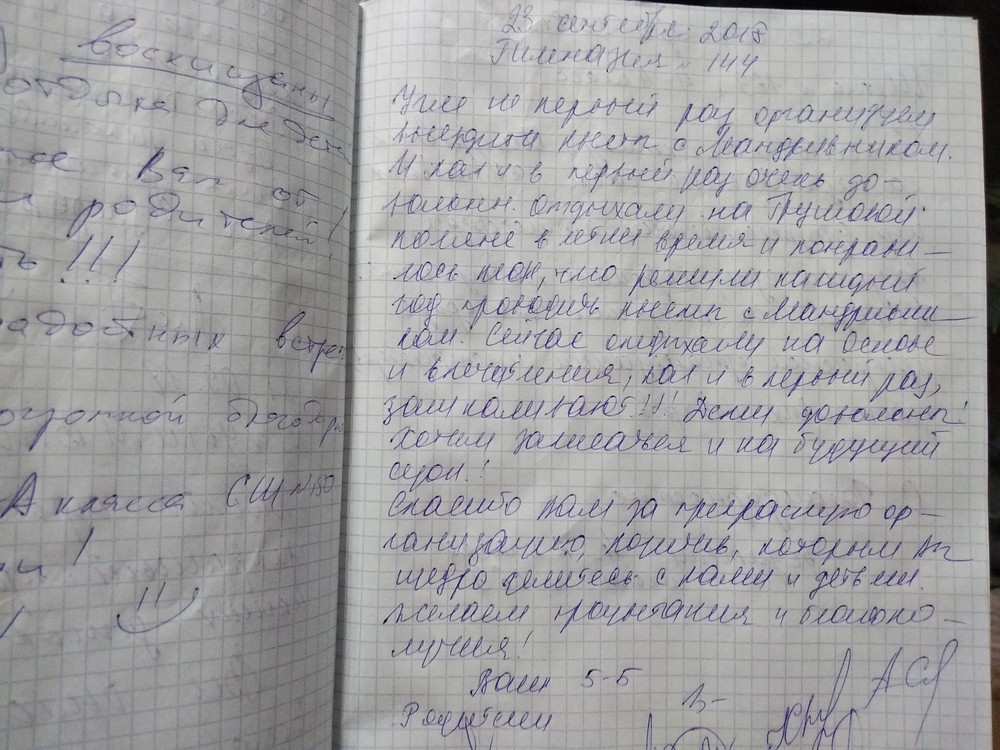 восхищены
отдыха
Вам от
родителей!
!!!
встреч
А класса СШ №150
!
23 сентября 2018
Гимназия № 144
Уже не первый раз организуем
выездной квест с Мандрывником.
И как и в первый раз очень до-
вольны. Отдыхали на Трушовой
поляне в летнее время и понрави-
лось так, что решили каждый
год проводить квест с Мандрывни-
ком. Сейчас отдыхали на
и впечатления, как и в первый раз,
зашкаливают!!! Дети довольны!
Хотим записаться и на будущий
сезон!!
Спасибо Вам за прекрасную ор-
ганизацию, позитив, которым Вы
щедро делитесь с нами и детьми.
Желаем процветания и благопо-
лучия!
Ваш 5-Б
Родители